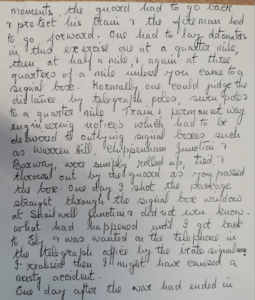 moments, the guard had to go back
& protect his train & the fireman had
to go forward. One had to lay detonators
in this exercise one at a quarter mile,
then at half a mile & again at three
quarters of a mile unless you came to a
signal box. Normally one could judge the
distance by telegraph poles, seven poles
to a quarter mile. Train & permanent way
engineering notices which had to be
delivered to outlying signal boxes such
as Warren Hill, Chippenham Junction &
were simply rolled up, tied &
thrown out by the guard as you passed
the box. One day I shot the package
straight through the signal box window
at Snailwell Junction & did not know
what had happened until I got back
to Ely & was wanted on the telephone in
the telegraph office by the irate signalman
I realised then I might have caused a
nasty accident.
One day after the war had ended in